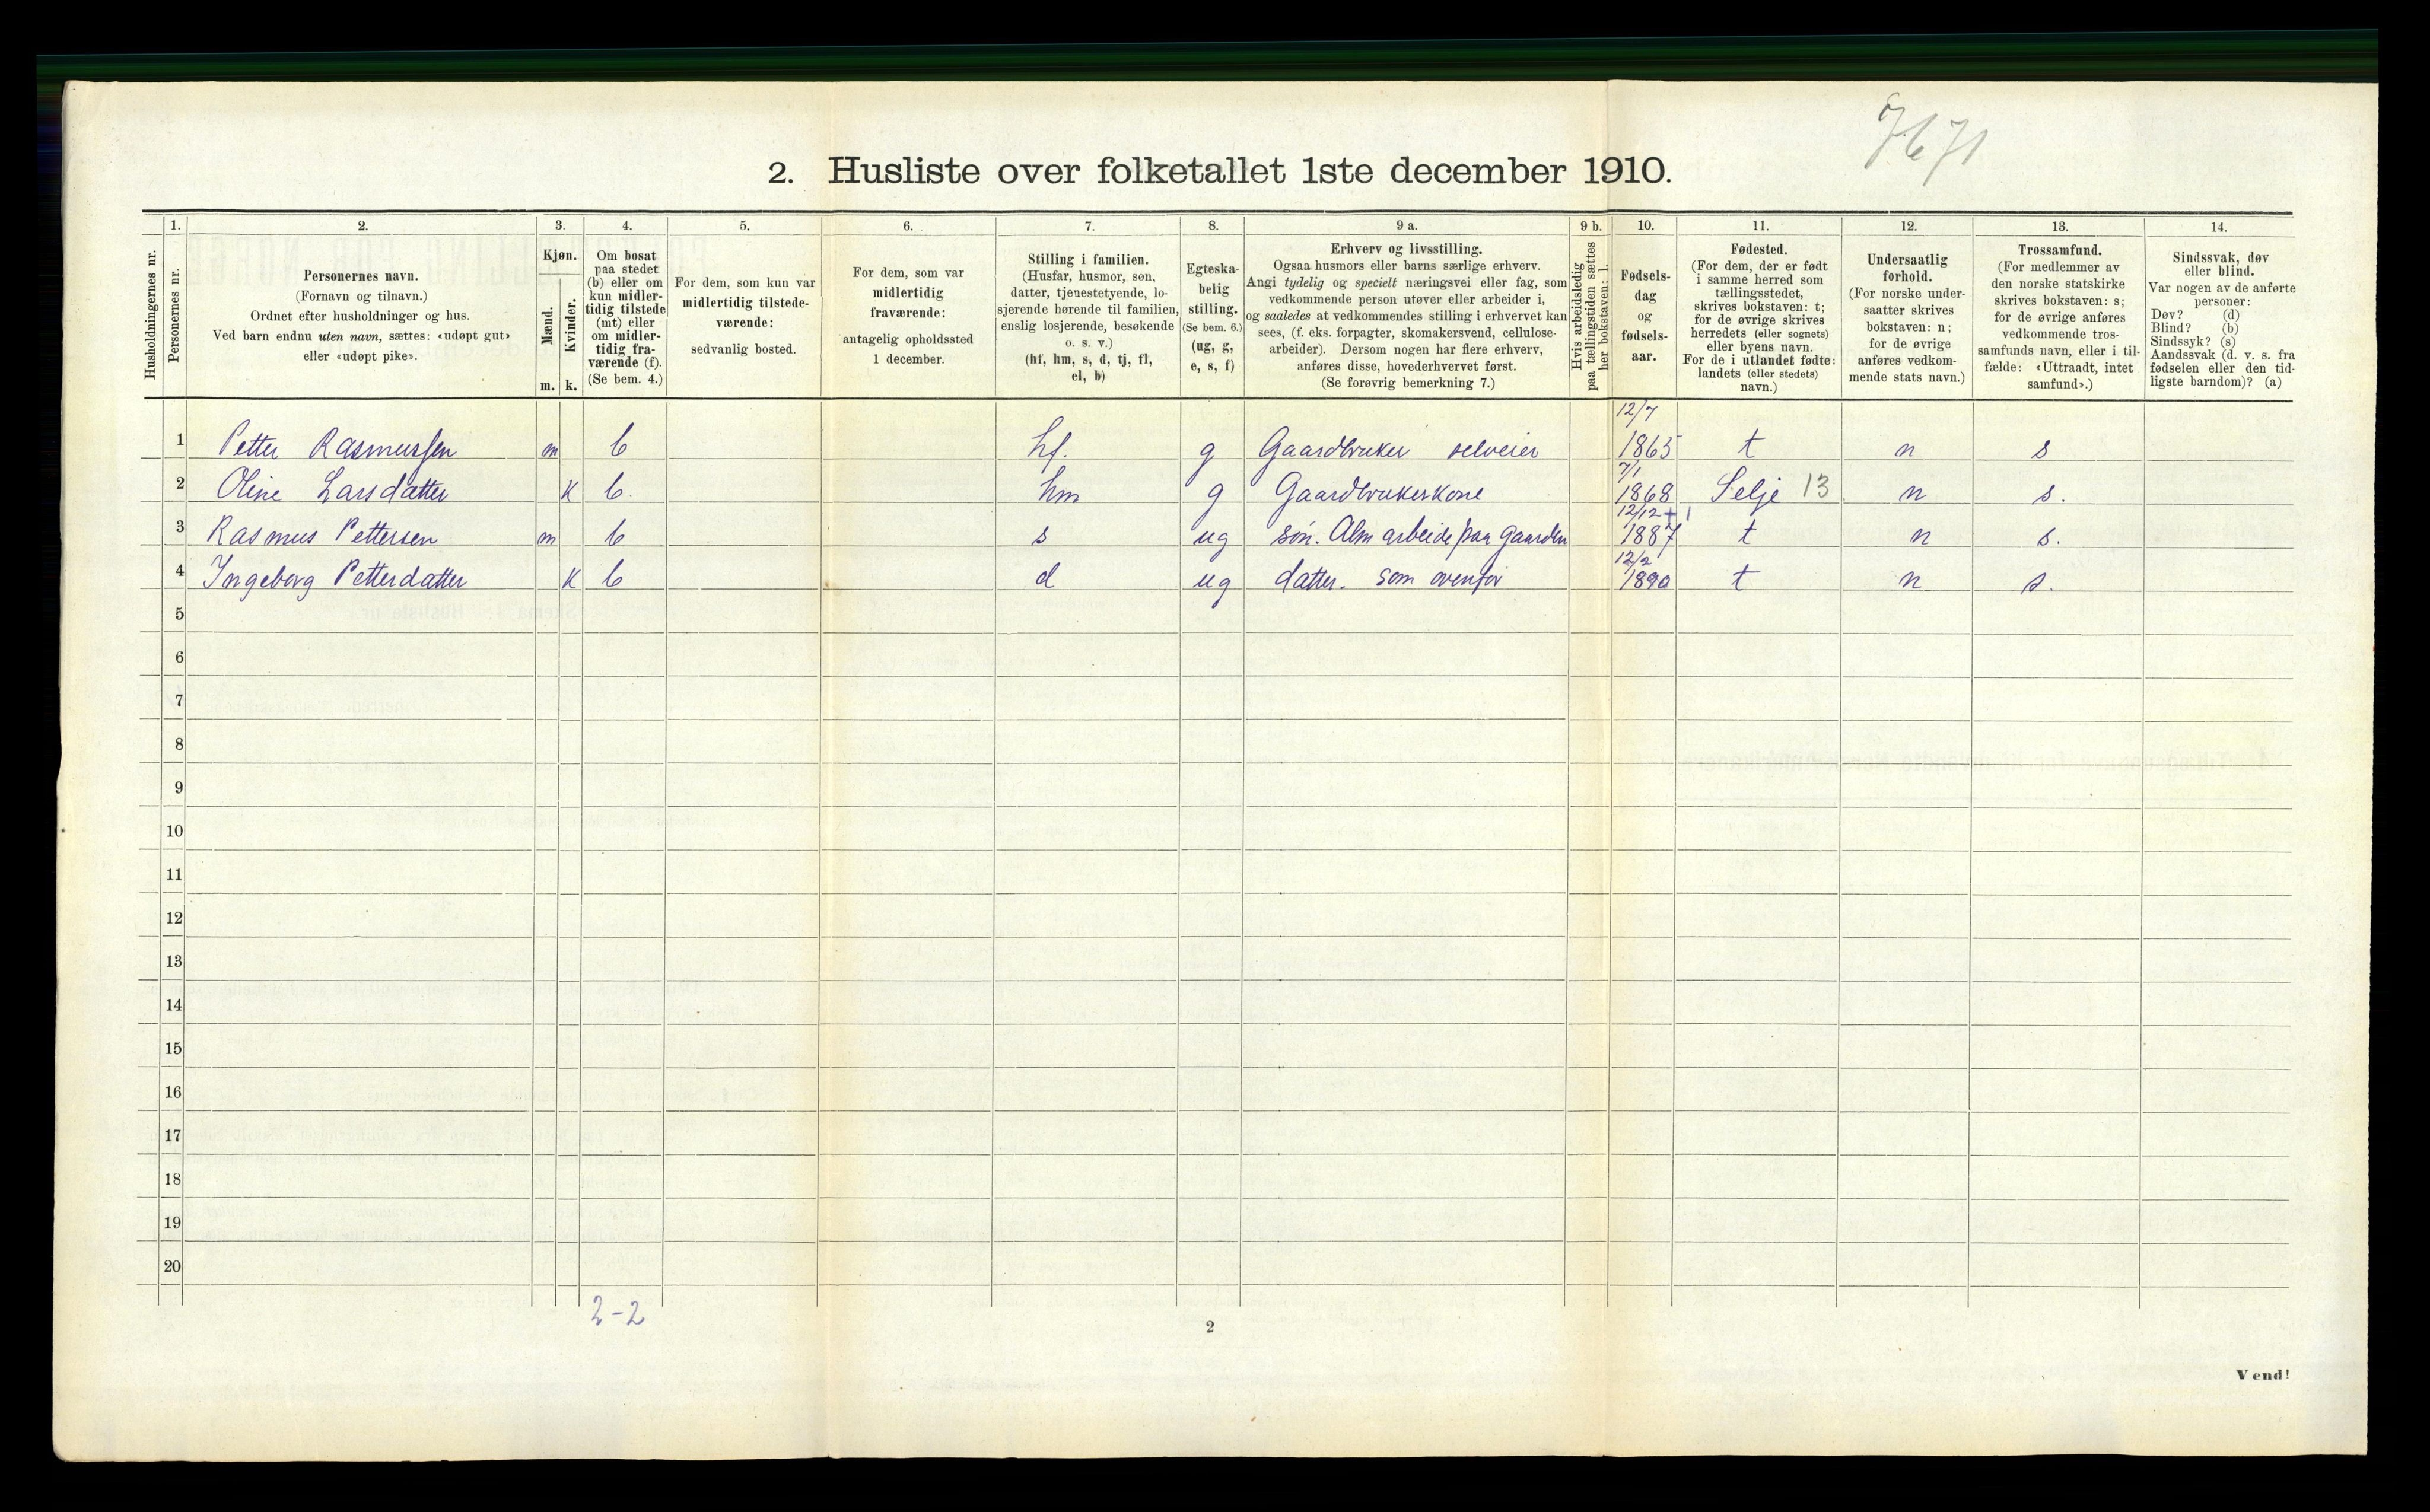 7671
2. Husliste over folketallet 1ste december 1910.
1. 2. 3. 4. 5. 6. 7. 8. 9 a. 9 b. 10. 11. 12. 13. 14.
Husholdningernes nr.
Personernes nr.
Personernes navn.
(Fornavn og tilnavn.)
Ordnet efter husholdninger og hus.
Ved barn endnu uten navn, sættes: «udøpt gut»
eller «udøpt pike».
Kjøn.
Mænd.
Kvinder.
m. k.
Om bosat
paa stedet
(b) eller om
kun midler-
tidig tilstede
(mt) eller
om midler-
tidig fra-
værende (f).
(Se bem. 4.)
For dem, som kun var
midlertidig tilstede-
værende:
sedvanlig bosted.
For dem, som var
midlertidig
fraværende:
antagelig opholdssted
1 december.
Stilling i familien.
(Husfar, husmor, søn,
datter, tjenestetyende, lo-
sjerende hørende til familien,
enslig losjerende, besøkende
o. s. v.)
(hf, hm, s, d, tj, fl,
el, b)
Egteska-
belig
stilling.
(Se bem. 6.)
(ug, g,
e, s, f)
Erhverv og livsstilling.
Ogsaa husmors eller barns særlige erhverv.
Angi tydelig og specielt næringsvei eller fag, som
vedkommende person utøver eller arbeider i,
og saaledes at vedkommendes stilling i erhvervet kan
sees, (f. eks. forpagter, skomakersvend, cellulose-
arbeider). Dersom nogen har flere erhverv,
anføres disse, hovederhvervet først.
(Se forøvrig bemerkning 7.)
Hvis arbeidsledig
paa tællingstiden sættes
her bokstaven: l.
Fødsels-
dag
og
fødsels-
aar.
Fødested.
(For dem, der er født
i samme herred som
tællingsstedet,
skrives bokstaven: t;
for de øvrige skrives
herredets (eller sognets)
eller byens navn.
For de i utlandet fødte:
landets (eller stedets)
navn.)
Undersaatlig
forhold.
(For norske under-
saatter skrives
bokstaven: n;
for de øvrige
anføres vedkom-
mende stats navn.)
Trossamfund.
(For medlemmer av
den norske statskirke
skrives bokstaven: s;
for de øvrige anføres
vedkommende tros-
samfunds navn, eller i til-
fælde: «Uttraadt, intet
samfund».)
Sindssvak, døv
eller blind.
Var nogen av de anførte
personer:
Døv? (d)
Blind? (b)
Sindssyk? (s)
Aandssvak (d. v. s. fra
fødselen eller den tid-
ligste barndom)? (a)
12/7
1 Petter Rasmussen m b hf. g Gaardbruker selveier 1865 t n s
7/1
2 Oline Larsdatter k b. hm g Gaardbrukerkone 1868 Selje 13 n s.
12/12
3 Rasmus Pettersen m b s ug søn. Alm arbeide paa gaarden 1887 t n s.
12/2
4 Ingeborg Petterdatter k b d ug datter. som ovenfor 1890 t n s.
5
6
7
8
9
10
11
12
13
14
15
16
17
18
19
20
2-2
2
Vend!